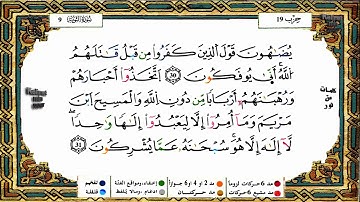 9 سورة التوبة
حزب 19
يُضَـٰهِـُٔونَ قَوْلَ ٱلَّذِينَ كَفَرُوا۟ مِن قَبْلُ قَـٰتَلَهُمُ
ٱللَّهُ أَنَّىٰ يُؤْفَكُونَ ٣٠ ٱتَّخَذُوٓا۟ أَحْبَارَهُمْ
وَرُهْبَـٰنَهُمْ أَرْبَابًا مِّن دُونِ ٱللَّهِ وَٱلْمَسِيحَ ٱبْنَ
مَرْيَمَ وَمَآ أُمِرُوٓا۟ إِلَّا لِيَعْبُدُوٓا۟ إِلَـٰهًا وَٰحِدًا
لَّآ إِلَـٰهَ إِلَّا هُوَ سُبْحَـٰنَهُۥ عَمَّا يُشْرِكُونَ ٣١
كلمات
من
نور
مد 6 حركات لزوما
مد 2 أو 4 أو 6 جوازا
إخفاء، ومواقع الغنّة
تفخيم
مد مشبع 6 حركات
مد حركتان
إدغام، ومالا يُلفظ
قلقلة